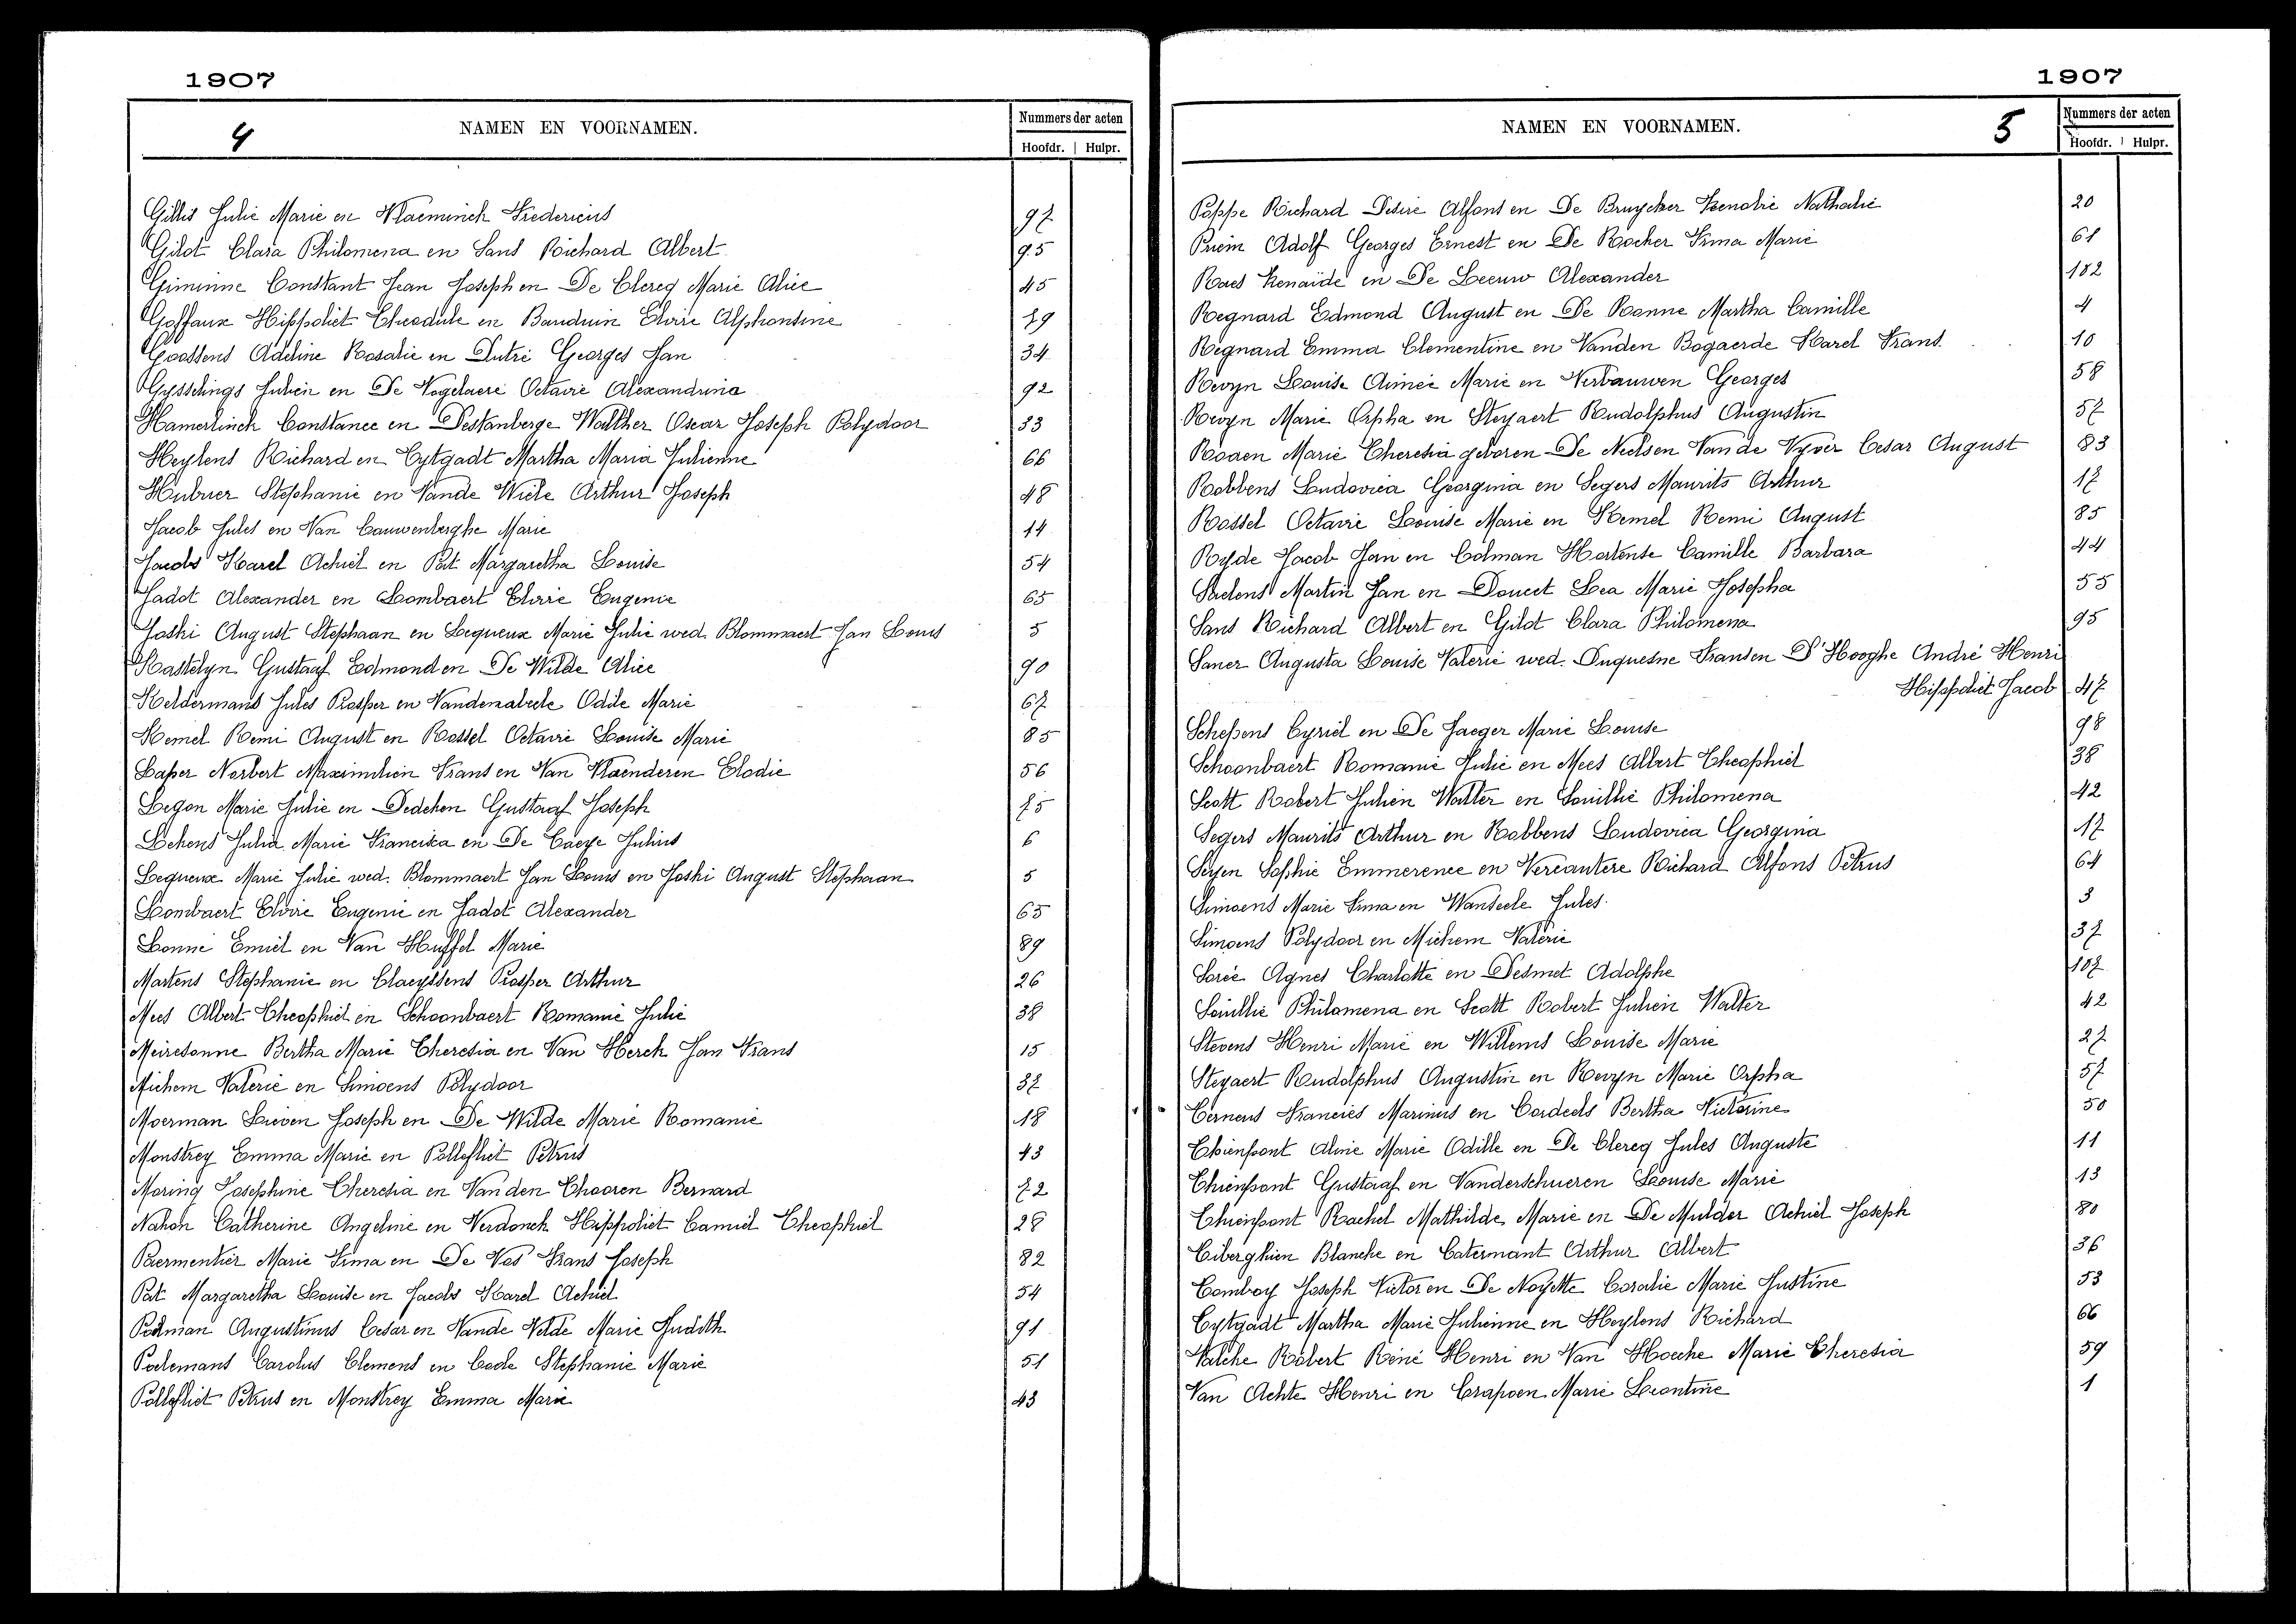 1907
4
NAMEN EN VOORNAMEN.
Nummers der acten
Hoofdr. | Hulpr.
Gillis Julie Marie en Vlaeminck Fredericus 97
Gilot Clara Philomena en Sans Richard Albert 95
Giminne Constant Jean Joseph en De Clercq Marie Alice 45
Goffaux Hippoliet Theodule en Bauduin Elvire Alphonsine 79
Goossens Adeline Rosalie en Dutré Georges Jan 34
Gysselings Julien en De Vogelaere Octavie Alexandrina 92
Hamerlinck Constance en Destanberge Walther Oscar Joseph Polydoor 33
Heylens Richard en Tytgadt Martha Maria Julienne 66
Hubner Stephanie en Vande Wiele Arthur Joseph 48
Jacob Jules en Van Cauwenberghe Marie 14
Jacobs Karel Achiel en Pat Margaretha Louise 54
Jadot Alexander en Lombaert Elvire Eugenie 65
Joski August Stephaan en Lequeux Marie Julie wed. Blommaert Jan Louis 5
Kastelyn Gustaaf Edmond en De Wilde Alice 90
Keldermans Jules Prosper en Vandenabeele Odile Marie 67
Kemel Remi August en Rossel Octavie Louise Marie 85
Laper Norbert Maximilien Frans en Van Vlaenderen Elodie 56
Legon Marie Julie en Dedeken Gustaaf Joseph 75
Lekens Julia Marie Francisca en De Caeye Julius 6
Lequeux Marie Julie wed. Blommaert Jan Louis en Joski August Stephaan 5
Lombaert Elvire Eugenie en Jadot Alexander 65
Lonne Emiel en Van Huffel Marie 89
Martens Stephanie en Claeyssens Prosper Arthur 26
Mees Albert Theophiel en Schoonbaert Romanie Julie 38
Meiresonne Bertha Marie Theresia en Van Herck Jan Frans 15
Michem Valerie en Simoens Polydoor 37
Moerman Lieven Joseph en De Wilde Marie Romanie 18
Monstrey Emma Marie en Polleffiet Petrus 43
Moring Josephine Theresia en Van den Thooren Bernard 72
Nahon Catherine Angeline en Verdonck Hippoliet Camiel Theophiel 28
Paermentier Marie Irma en De Vos Frans Joseph 82
Pat Margaretha Louise en Jacobs Karel Achiel 54
Augustinus Cesar en Vande Velde Marie Judith 91
Poelemans Carolus Clemens en Cools Stephanie Marie 51
Polleffiet Petrus en Monstrey Emma Marie 43
1907
NAMEN EN VOORNAMEN.
5
Nummers der acten
Hoofdr. | Hulpr.
Poppe Richard Desiré Alfons en De Bruycker Zenobie Nathalie 20
Priem Adolf Georges Ernest en De Rocker Irma Marie 61
Raes Zenaïde en De Leeuw Alexander 102
Regnard Edmond August en De Ronne Martha Camille 4
Regnard Emma Clementine en Vanden Bogaerde Karel Frans 10
Revyn Louise Aimée Marie en Verbauwen Georges 58
Revyn Marie Orpha en Steyaert Rudolphus Augustin 57
Roaen Marie Theresia geboren De Neels en Van de Vyver Cesar August 83
Robbens Ludovica Georgina en Segers Maurits Arthur 17
Rossel Octavie Louise Marie en Kemel Remi August 85
Ryde Jacob Jan en Colman Hortense Camille Barbara 44
Saelens Martin Jan en Doucet Lea Marie Josepha 55
Sans Richard Albert en Gilot Clara Philomena 95
Saner Augusta Louise Valerie wed. Duquesne Frans en D'Hooghe André Henri
Hippoliet Jacob 47
Schepens Cyriel en De Jaeger Marie Louise 98
Schoonbaert Romanie Julie en Mees Albert Theophiel 38
Scott Robert Julien Walter en Souillie Philomena 42
Segers Maurits Arthur en Robbens Ludovica Georgina 17
Seyen Sophie Emmerence en Vercautere Richard Alfons Petrus 64
Simoens Marie Irma en Wanseele Jules. 3
Simoens Polydoor en Michem Valerie 37
Sorée Agnes Charlotte en Desmet Adolphe 107
Souillie Philomena en Scott Robert Julien Walter 42
Stevens Henri Marie en Willems Louise Marie 27
Steyaert Rudolphus Augustin en Revyn Marie Orpha 57
Ternens Francies Marinus en Cordeels Bertha Victorine 50
Thienpont Aline Marie Odille en De Clercq Jules Auguste 11
Thienpont Gustaaf en Vanderschueren Louise Marie 13
Thienpont Rachel Mathilde Marie en De Mulder Achiel Joseph 80
Tiberghien Blanche en Catermant Arthur Albert 36
Tomboy Joseph Victor en De Noyette Coralie Marie Justine 53
Tytgadt Martha Marie Julienne en Heylens Richard 66
Valcke Robert René Henri en Van Hoecke Marie Theresia 59
Van Achte Henri en Crapoen Marie Leontine 1